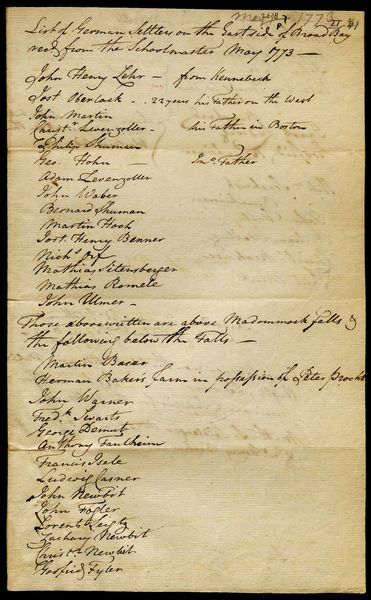 May 1773
List of German Settlers on the East side of Broad Bay
recd from the Schoolmaster May 1773 —
John Henry Lehr — from Kennebeck
Jost Oberlack - 22 years his Father on the West
John Martin
Christr. Levenzoller - his Father in Boston
Philip Shuman
Geo. Hohn — Jno. Father
Adam Levenzoller
John Waber
Bernard Shuman
Martin Hoch
Jost. Henry Benner
Nichs. Orf
Mathias Sitensberger
Mathias Romele
John Ulmer —
Those above written are above Madommock falls &
the following below the Falls —
Martin Baser
Herman Baker's Farm in possession of Peter
John Warner
Fredk. Swarts
George Demut
Anthony Faulheim
Francis Isele
Ludwig Casner
John Newbit
John Fogler
Lorentz
Zachery Newbit
Christr. Newbit
Godfrid Fyler